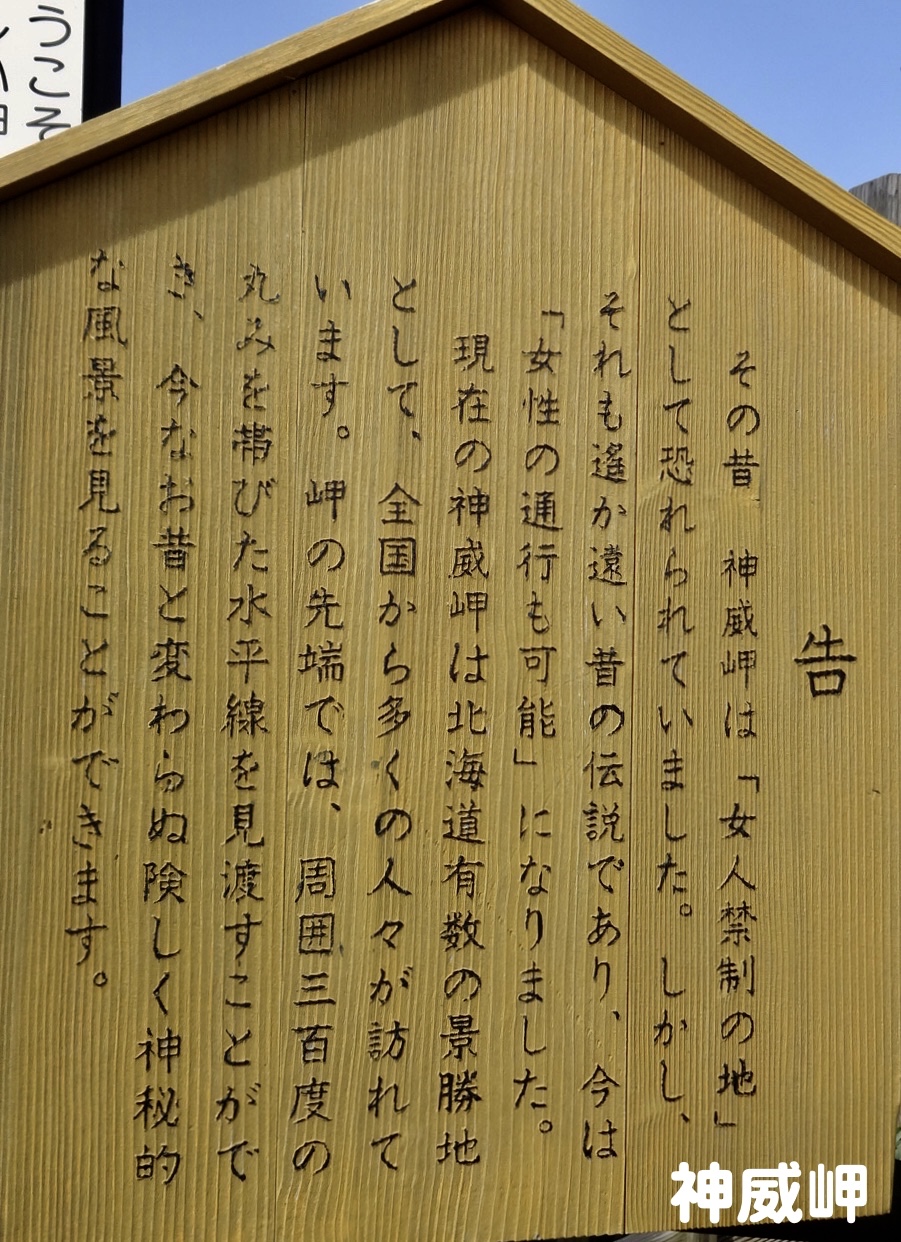 告
その昔 神威岬は「女人禁制の地」
として恐れられていました。しかし、
それも遙か遠い昔の伝説であり、今は
「女性の通行も可能」になりました。
現在の神威岬は北海道有数の景勝地
として、全国から多くの人々が訪れて
います。岬の先端では、周囲三百度の
丸みを帯びた水平線を見渡すことがで
き、今なお昔と変わらぬ険しく神秘的
な風景を見ることができます。
うこそ
神威岬